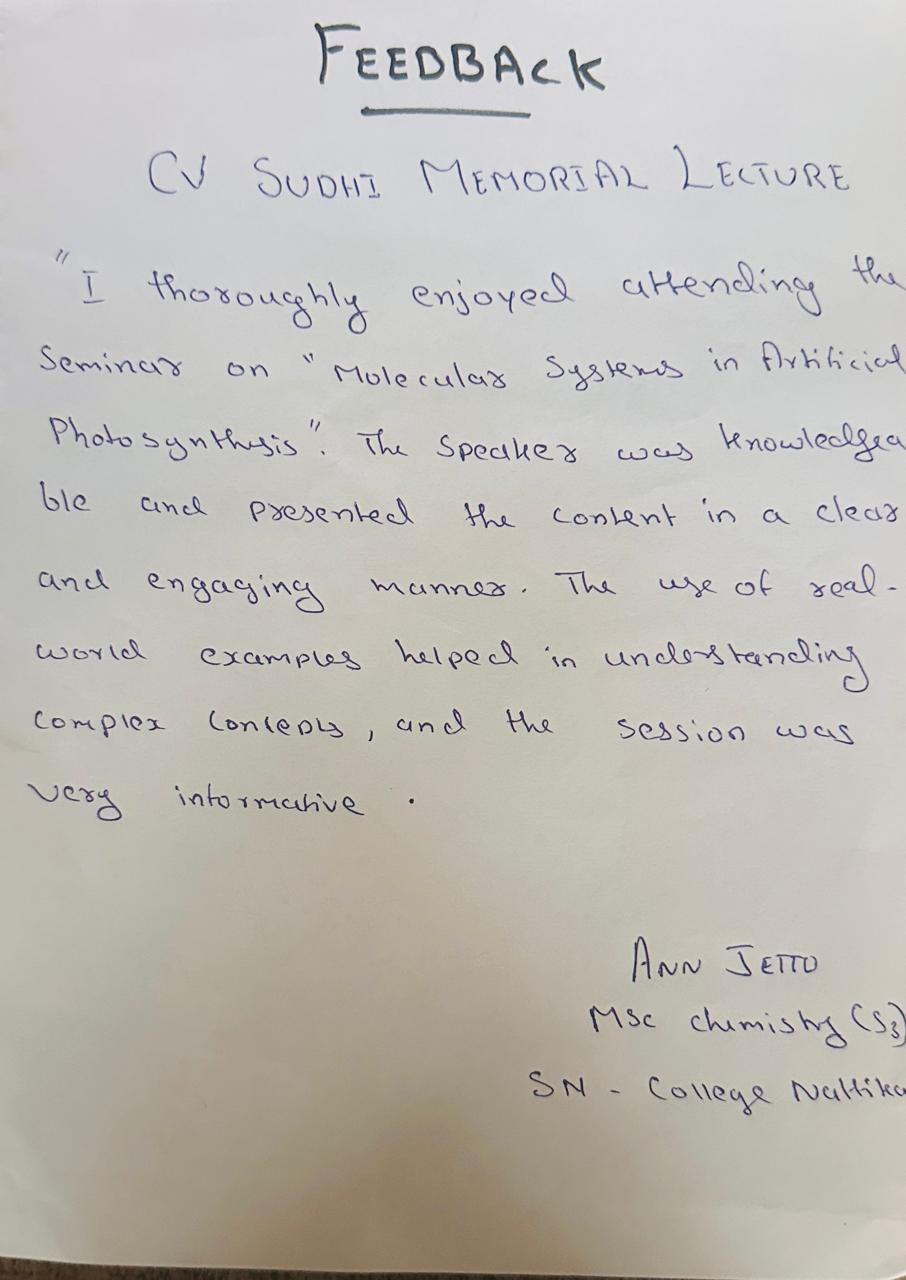 FEEDBACK
CV SUDHI MEMORIAL LECTURE
"I thoroughly enjoyed attending the
Seminar on "Molecular Systems in Artificial
Photosynthesis". The Speaker was knowledgea
ble and presented the content in a clear
and engaging manner. The use of real-
world examples helped in understanding
complex concepts, and the session was
very informative.
ANN JETTO
MSc chemistry (S3)
SN - College Nattika